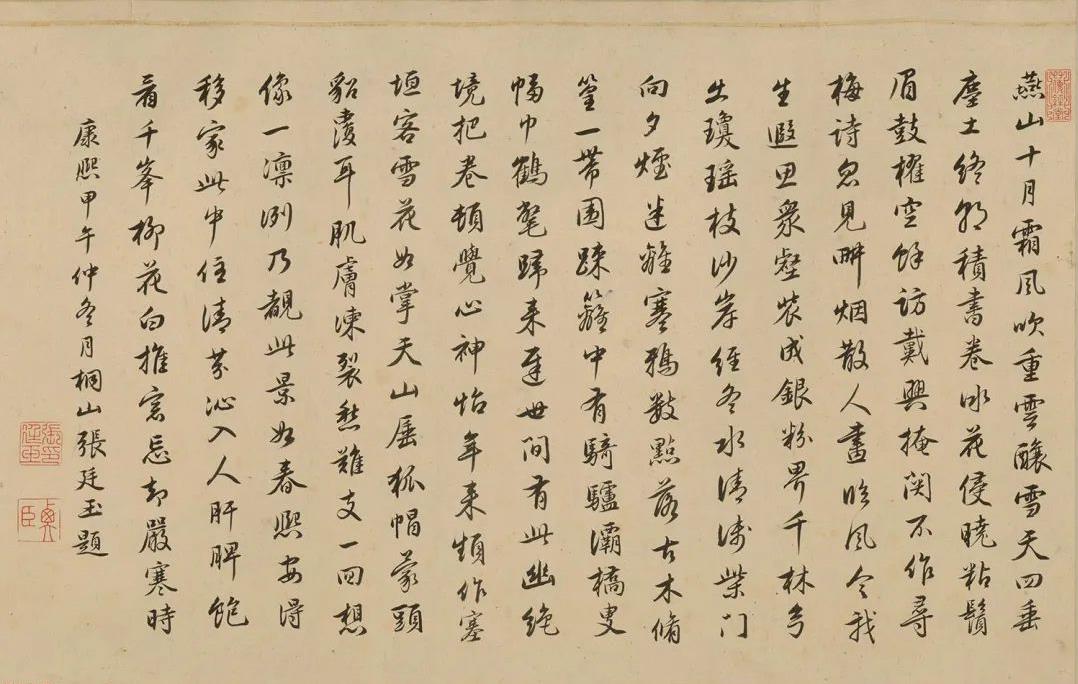 燕山十月霜風吹重雲釀雪天四垂
塵土終朝積書卷冰花侵曉粘鬚
眉鼓櫂空餘訪戴興掩関不作尋
梅詩忽見畊烟散人畫臨風令我
生遐思衆壑裝成銀粉界千林
出瓊瑶枝沙岸經冬水清淺柴門
向夕煙迷離寒鴉數點落古木脩
篁一帶圍踈籬中有騎驢灞橋叟
幅巾鶴氅歸来遲世間有此幽絕
境把卷頓覺心神怡年来頻作塞
垣客雪花如掌天山厓狐帽蒙頭
貂覆耳肌膚凍裂愁難支一回想
像一凛冽乃覩此景如春熙安得
移家此中住清芬沁入人肝脾飽
看千峯柳花白推窓忘却嚴寒時
康熙甲午仲冬月桐山張廷玉題